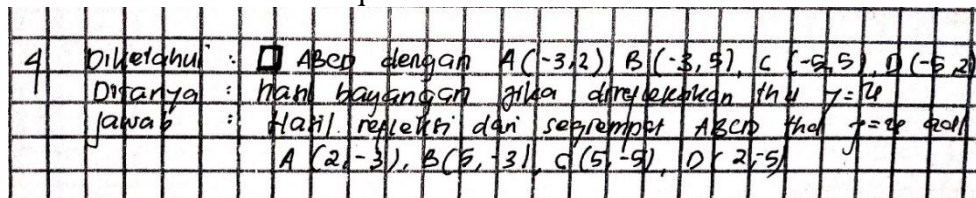 4 Diketahui : □ ABCD dengan A(-3,2) B(-3,5), C(-5,5), D(-5,2)
Ditanya : hasil bayangan jika direfleksikan thd y=x
Jawab : Hasil refleksi dari segiempat ABCD thd y=x adl
A (2,-3), B(5,-3), C(5,-5), D(2,-5)